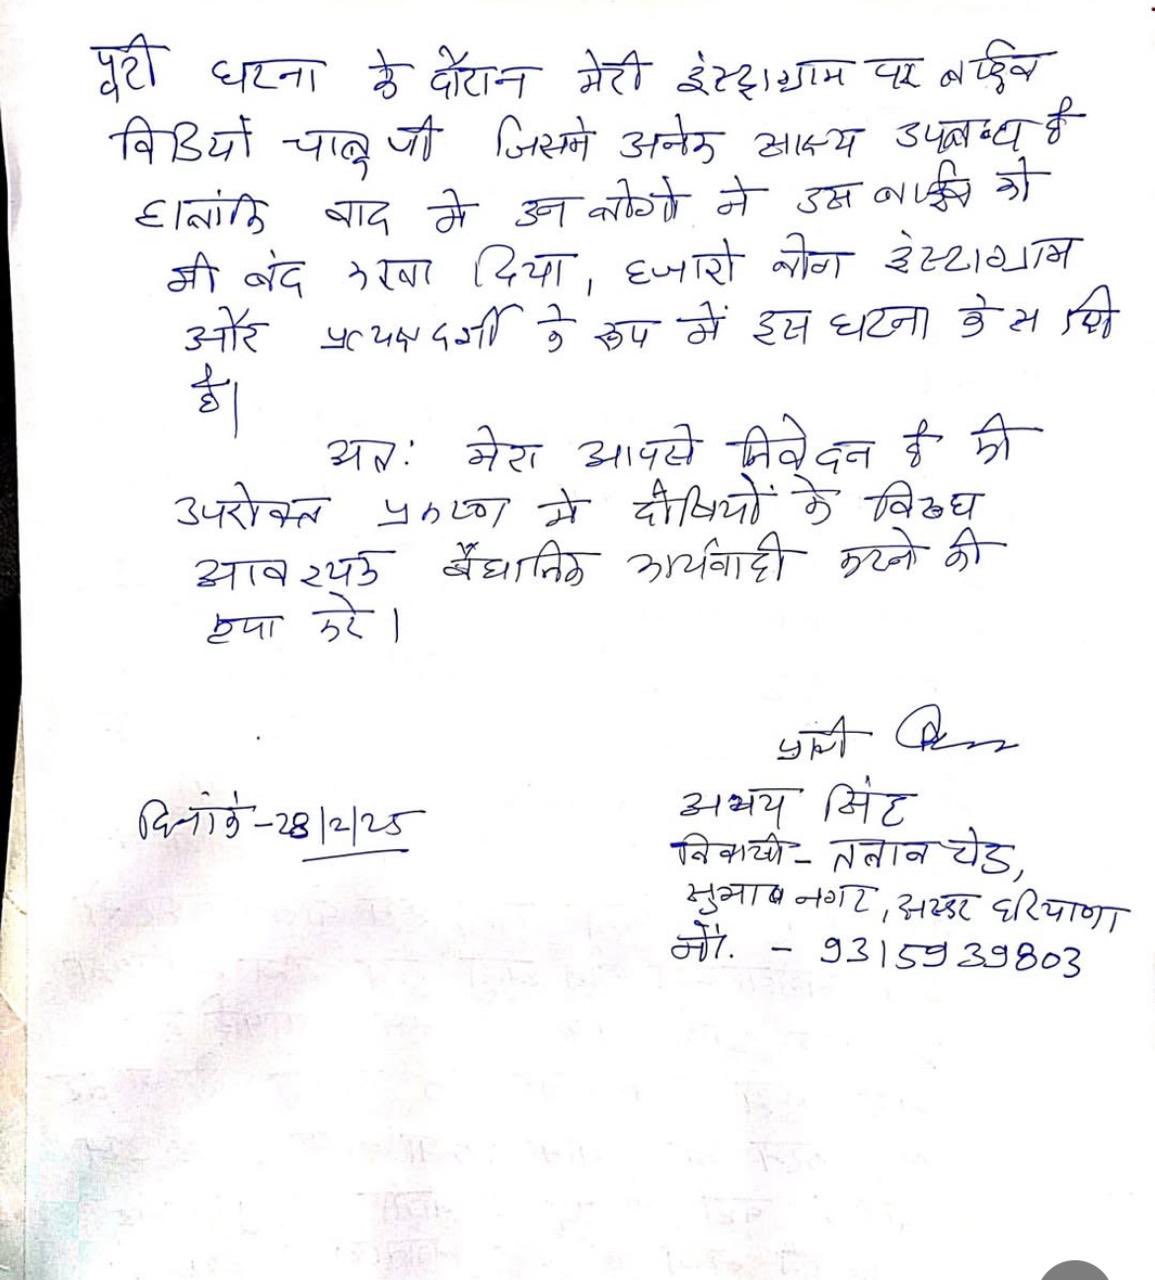 पूरी घटना के दौरान मेरी इंस्टाग्राम पर लाईव
विडियों चालू थी जिसमे अनेक साक्ष्य उपलब्ध है
हालांकि बाद मे उन लोगो ने उस लाईव को
भी बंद करवा दिया, हजारो लोग इंस्टाग्राम
और प्रत्यक्षदर्शी के रूप में इस घटना के साक्षी
है।
अतः मेरा आपसे निवेदन है की
उपरोक्त प्रकरण मे दोषियों के विरुध
आवश्यक वैधानिक कार्यवाही करने की
कृपा करे।
प्रार्थी
अभय सिंह
दिनांक - 28/2/25
निवासी - तलाव रोड,
सुभाष नगर, झज्जर हरियाणा
मों. - 9315939803